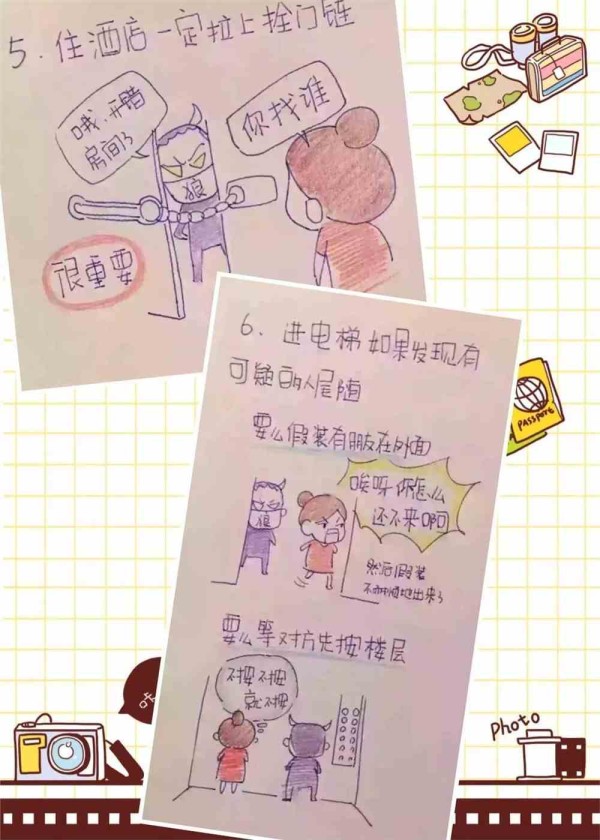 5. 住酒店一定拉上拴门链
哦,开错
房间了
你找谁
狼
很重要
6. 进电梯如果发现有
可疑的人尾随
要么假装有朋友在外面
唉呀你怎么
还不来啊
狼
然后假装
不耐烦地出来了
要么等对方先按楼层
不按不按
就不按
PASSPORT
咔
photo